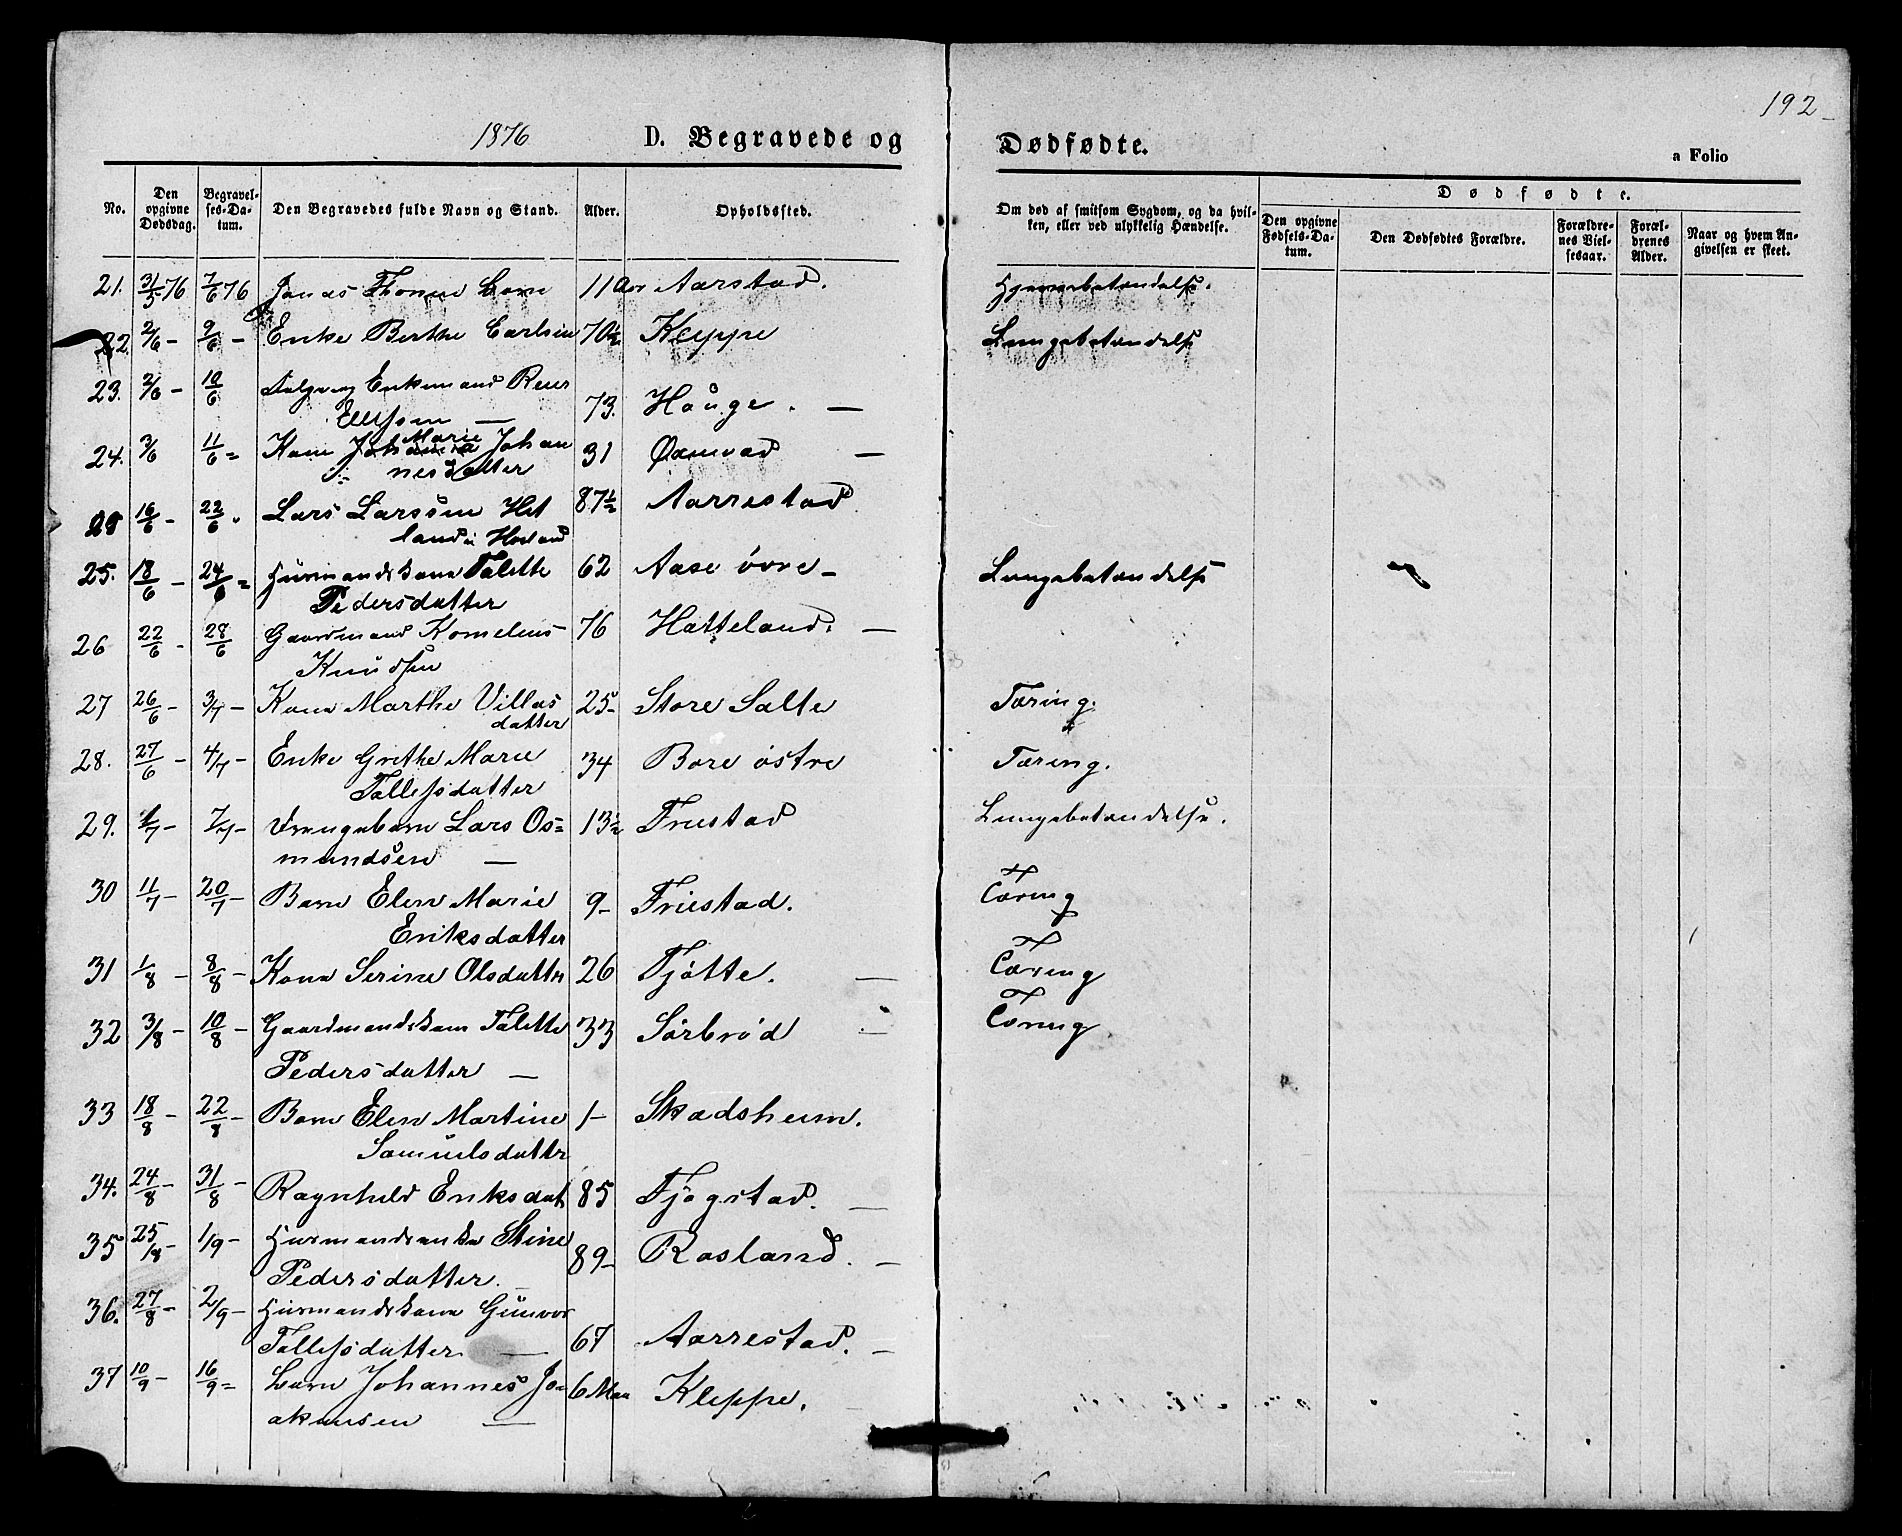 192
1876 D. Begravede og Dødfødte.
a Folio
No. Den opgivne Dødsdag. Begravelses-Datum. Den Begravedes fulde Navn og Stand. Alder. Opholdssted. Om død af smitsom Sygdom, og da hvilken, eller ved ulykkelig Hændelse. Dødfødte.
Den opgivne Fødsels-Datum. Den Dødfødtes Forældre. Forældrenes Vielsesaar. Forældrenes Alder. Naar og hvem Angivelsen er skeet.
21. 31/5 76 7/6 76 Jonas Thome Barn 11 Aar Aarstad. Hjernebetændelse.
22. 2/6 - 9/6 - Enke Berthe Carlsen 70½ Kleppe Lungebetændelse
23. 2/6 - 10/6 Enkemand Reier
Ellefsen — 73. Hauge. —
24. 3/6 11/6 = Kone Johanne Marie Johan
nesdatter 31 Øxnevad —
25 16/6 - 22/6 - Lars Larssen Het
land i Hoiland 87½ Aarrestad
25. 18/6 - 24/6 = Huusmandskone Talette 62 Aase övre - Lungebetændelse
Pedersdatter
26 22/6 - 28/6 Gaardmand Kornelius 76 Hatteland. —
Knudsen
27 26/6 - 3/7 - Kone Marthe Villas 25- Store Salte Tæring.
datter
28. 27/6 - 4/7 - Enke Grethe Marie 34 Bore östre Tæring.
Tollefsdatter
29. 1/7 - 7/7 - Drengebarn Lars Os= 13½ Friestad Lungebetændelse.
mundsen —
30 11/7 - 20/7 - Barn Elen Marie 9- Friestad. Tæring
Eriksdatter
31 1/8 - 8/8 - Kone Serine Olsdatter 26 Tjötte. — Tæring
32 3/8 - 10/8 - Gaardmandskone Talette 33 Sörbröd — Tæring
Pedersdatter —
33 18/8 - 22/8 - Barn Elen Martine 1- Skadsheim.
Samuelsdatter
34. 24/8 - 31/8 - Ragnhild Eriksdat 85 Tjögstad. —
35 25/8 - 1/9 - Huusmandsenke Stine
Pedersdatter. — 89- Rosland. —
36. 27/8 - 2/9 - Huusmandskone Gunvor
Tollefsdatter — 67 Aarrestad. —
37 10/9 - 16/9 = Barn Johannes Jo= 6 Maa Kleppe.
akimsen —